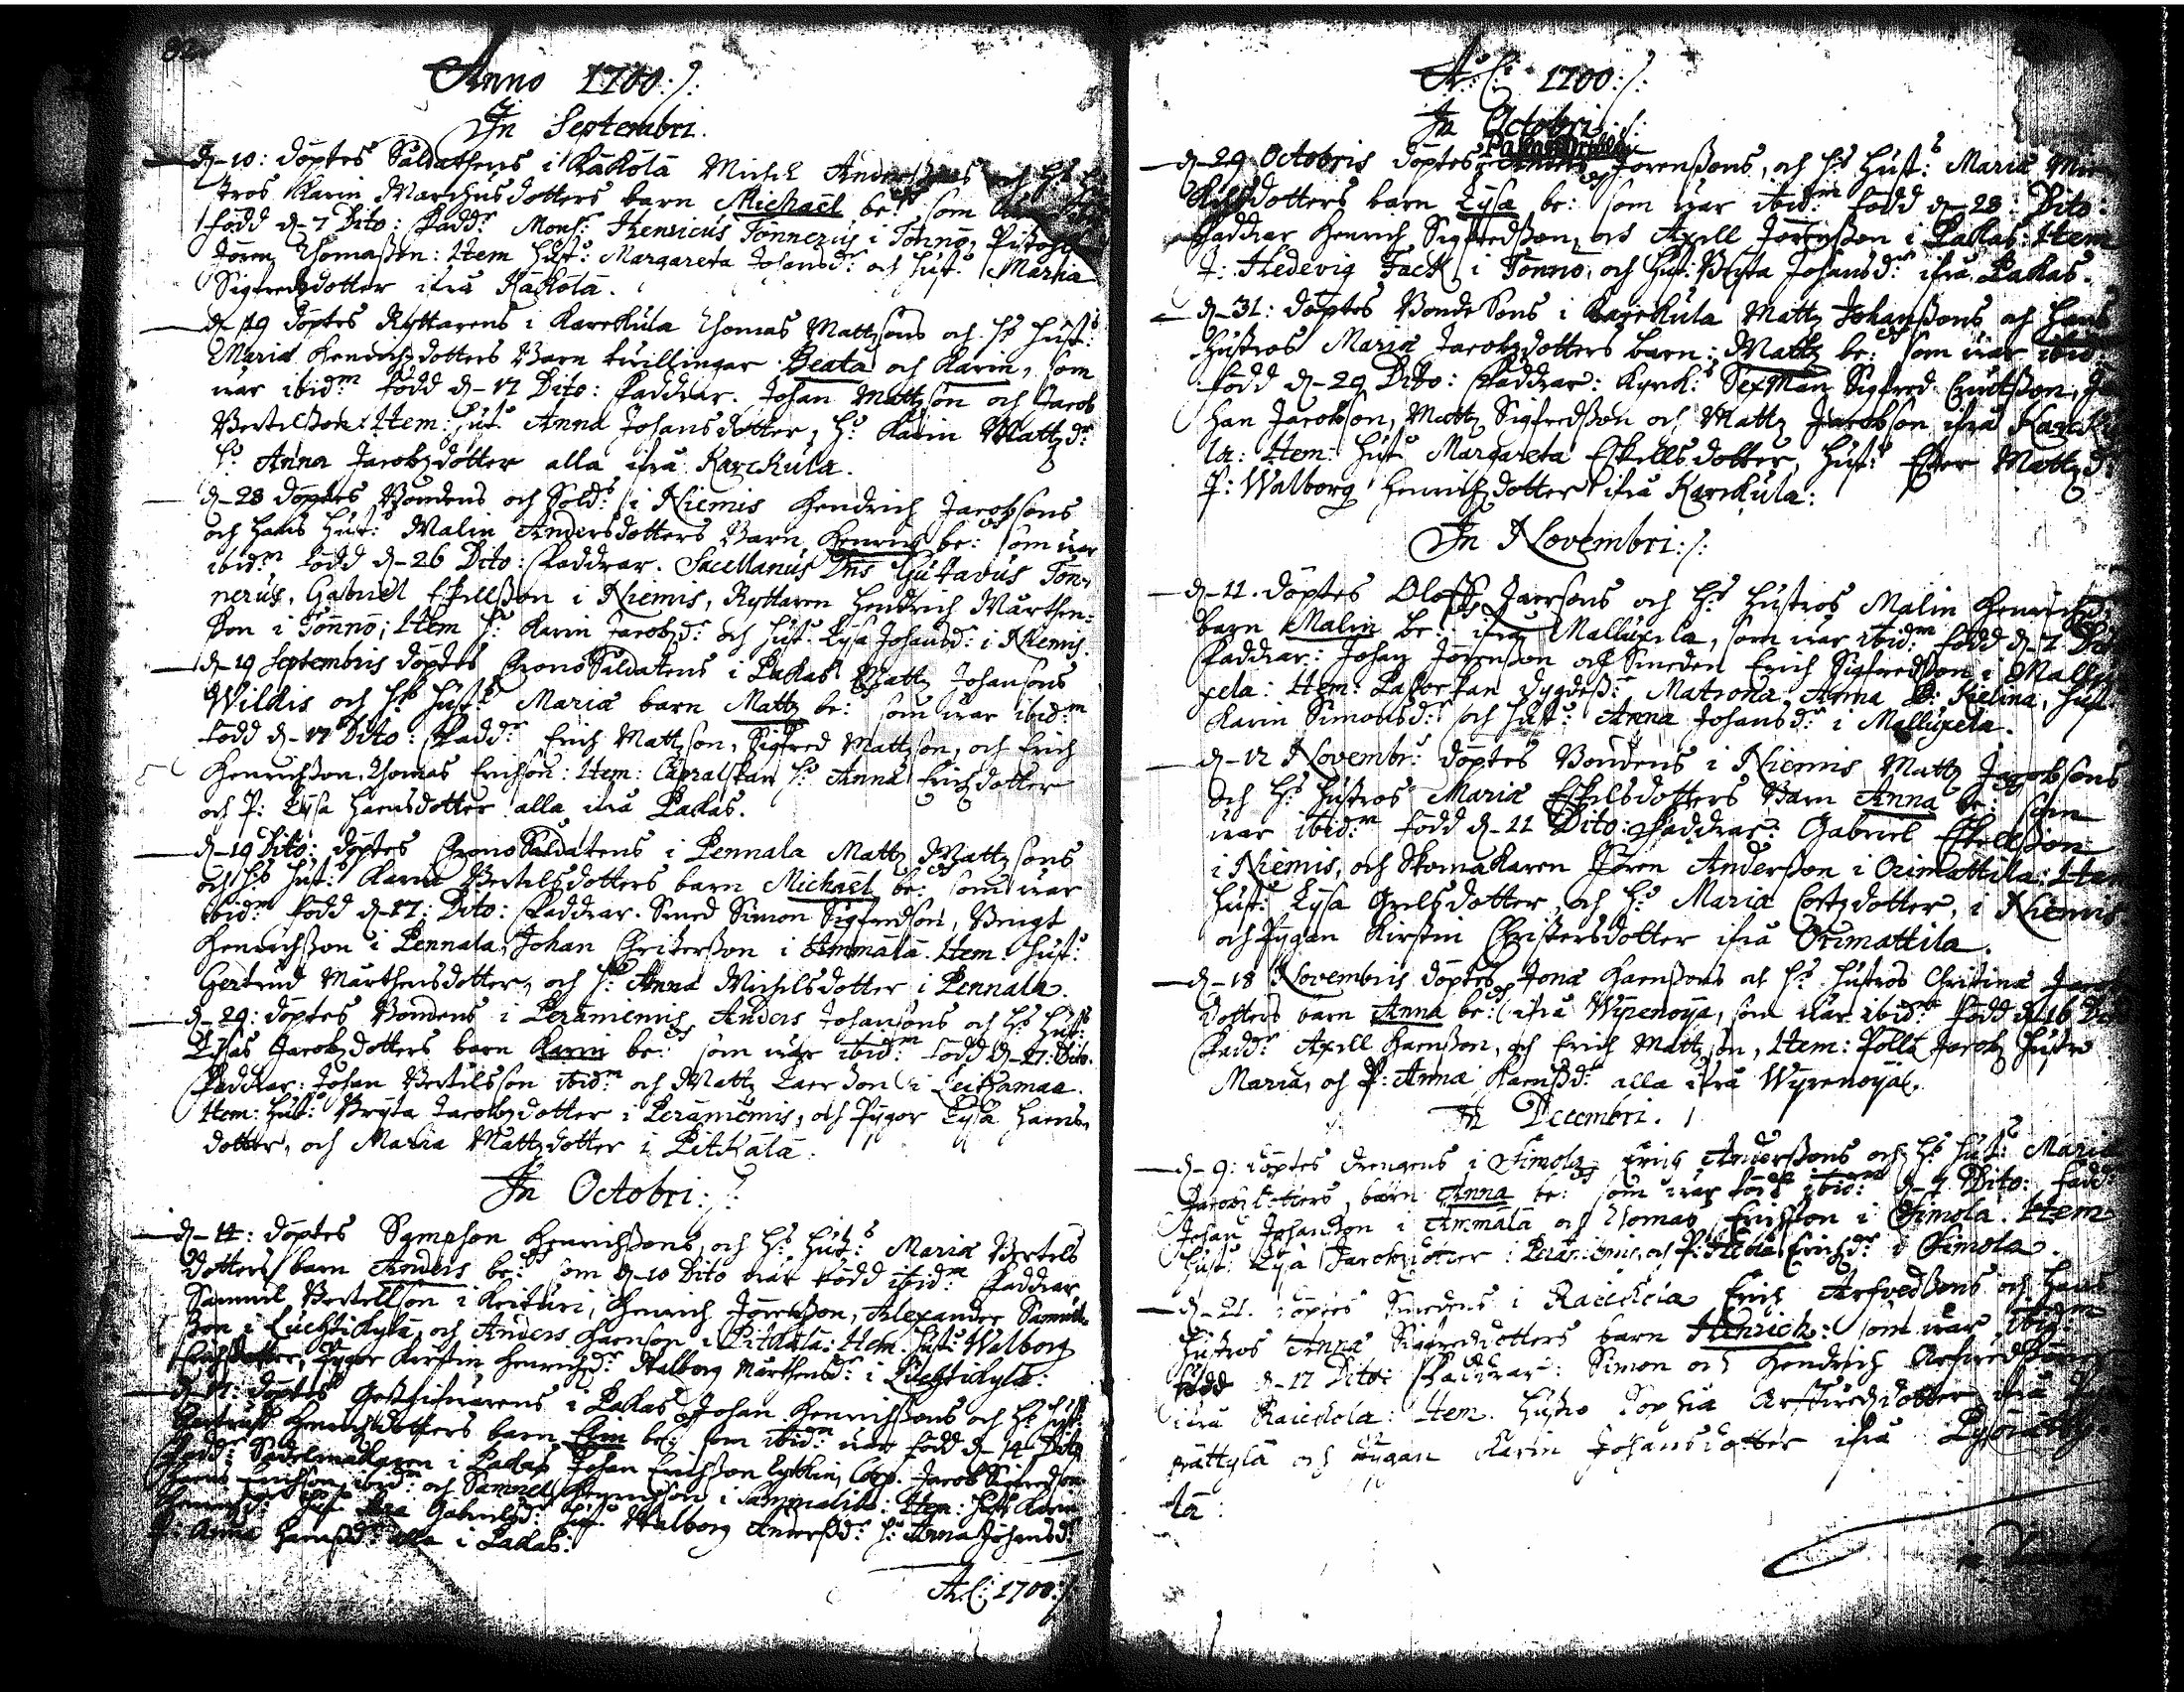 82
Anno 1700:/:
In Septembri.
d. 10: döptes Saldathens i Käkölä Michel Anderssons och Hs
tros Karin Marchusdotters barn Michaël be:d som
född d. 7 Dito: Fadd:r Mons:r Henricus Tönnerus i Tönnö,
Jören Thomasson: Item Hust: Margareta Johansd:r och Hust: Maria
Sigfredsdotter ifrå Käkölä.
d. 19 döptes Ryttarens i Karckula Thomas Mattzsons och Hs Hust:
Mariæ Hendrichzdotters Barn tvillingar Beata och Karin, som
war ibid:m född d. 17 Dito: Faddrar. Johan Mattzson och Jacob
Bertilsson: Item: Hust: Anna Johansdotter, H: Karin Mattzd:r
H: Anna Jacobzdotter alla ifrå Karckula.
d. 28 döptes Bondens och Sold:s i Niemis Hendrich Jacobsons
och Hans Hust: Malin Andersdotters Barn Henrich be:d som war
ibid:m född d. 26 Dito: Faddrar. Sacellanus Dns Gustavus Tön-
nerus, Gabriel Eskellsson i Niemis, Ryttaren Hendrich Mårthen-
son i Tönnö; Item H: Karin Jacobzd:r och Hust: Lysa Johansd:r i Niemis.
d. 19 Septembris döptes Crono Saldatens i Pakas Mattz Johansons
Wildis och Hs Hust: Mariæ barn Mattz be:d som war ibid:m
född d. 17 Dito: Fadd:r Erich Mattzson, Sigfred Mattzson, och Erich
Henrichsson, Thomas Erichson: Item: Capralskan H: Anna Erichzdotter
och P: Lysa Hansdotter alla ifrå Pakas.
d. 19 Dito: döptes Crono Saldatens i Pennala Mattz Mattzsons
och Hs Hust: Karin Bertilsdotters barn Michaël be:d som war
ibid:m född d. 17: Dito: Faddrar. Smed Simon Sigfredson, Bengt
Henrichsson i Pennala, Johan Christersson i Ammälä. Item. Hust:
Gertrud Mårthensdotter, och H: Anna Michelsdotter i Pennala.
d. 29: döptes Bondens i Peräniemis Anders Johansons och Hs Hust:
Lysas Jacobzdotters barn Karin be:d som war ibid:m född d. 27: Dito.
Faddrar: Johan Bertilsson ibid:m och Mattz Larsson i Leitzamaa.
Item: Hust: Bryta Jacobzdotter i Peräniemis, och Pygor Lysa Hans-
dotter, och Maria Mattzdotter i Pitkälä.
In Octobri:/:
d. 14: döptes Sampson Henrichssons och Hs Hust: Mariæ Bertels
dotters barn Anders be:d som d. 10 Dito war född ibid:m Faddrar,
Samuel Bertellson i Keituri, Henrich Jörensson, Alexander Samuel-
son i Luchtikylä, och Anders Hanson i Pitkälä: Item: Hust: Walborg
Pygor Kirstin Henrichzd:r Walborg Mårthensd:r i Luchtikylä:
döptes Gestgifwarens i Pakas Johan Henrichssons och Hs Hust:
Gertrud Henrichzdotters barn Elin be:d som ibid:m war född d. 14 Dito
Fadd:r Sadelmakaren i Pakas Johan Erichsson Lyttkin, Corp. Jacob Sigfredson
Hans Erichson ibid:m och Samuel Henrichson i Sammalisto: Item: Hust: Karin
Gabrielsd:r Hust: Walborg Andersd:r H: Anna Johansd:r
P: Anna Hansd:r alla i Pakas:
A:C: 1700:/:
A:o C: 1700:/:
In Octobri:/:
d. 29 Octobris döptes Jörenssons, och Hs Hust:s Mariæ Mi-
kelsdotters barn Lysa be: som war ibid:m född d. 28: Dito:
Faddrar Henrich Sigfredsson, och Axell Jörensson i Pakas: Item
J: Hedevig Fack i Tönnö, och Hust: Bryta Johansd:r ifrå Pakas.
d. 31: döptes Bonde Sons i Karckula Mattz Johanssons och Hans
Hustros Mariæ Jacobzdotters barn: Mattz be:d som war ibid:
född d. 29 Dito: Faddrar: Kyrck: Sexman Sigfred Knutsson, Jo
han Jacobson, Mattz Sigfredsson och Mattz Jacobson ifrå Karcku
la: Item: Hust: Margareta Eskellsdotter, Hust: Ester Mattzd:r
P: Walborg Henrichzdotter ifrå Karckula:
In Novembri:/:
d. 11. döptes Oloff Larsons och Hs Hustros Malin Henrichzd:
barn Malin be: ifrå Mallusela, som war ibid:m född d. 7 Dito
Faddrar: Johan Jörensson och Smeden Erich Sigfredsson i Mallu
sela: Item: Pastorskan dygdess: Matrona Anna Kielina, Hust:
Karin Simonsd:r och Hust: Anna Johansd:r i Mallusela.
d. 12 Novembr: döptes Bondens i Niemis Mattz Jacobsons
och Hs Hustros Mariæ Eskelsdotters Barn Anna be: som
war ibid:m född d. 11 Dito: Faddrar: Gabriel Eskelsson
i Niemis, och Skomakaren Jören Andersson i Orimattila: Item
Hust: Lysa Grelsdotter, och H: Maria Costzdotter, i Niemis
och Pygan Kirstin Christersdotter ifrå Orimattila.
d. 18 Novembris döptes Jonæ Hanssons och Hs Hustros Christinæ
dotters barn Anna be:d ifrå Wirenoija, som war ibid:m född d. 16 Dito
Fadd:r Axell Hansson, och Erich Mattzson, Item: Jacobz Hustro
Maria, och P: Anna Hansd:r alla ifrå Wyrenoija.
In Decembri.
d. 9: döptes drengens i Simola Erich Anderssons och Hs Hust: Mariæ
Jacobzdotters barn Anna be:d som war född ibid:m d. 7 Dito: Fadd:r
Johan Johansson i Ammälä och Thomas Erichsson i Simola. Item
Hust: Lysa Jacobzdotter i Peräniemis, och P: Hebla Erichzd:r i Simola.
d. 21. döptes Smedens i Raickola Erich Arfvedssons och Hans
Hustros Annæ Sigfredzdotters barn Henrich: som war ibid:m
född d. 17 Dito: Faddrar: Simon och Hendrich Arfvedssöner
ifrå Raickola: Item. Hustro Sophia Arfvedzdotter ifrå
mättylä och Pigan Karin Johansdotter ifrå
lä: